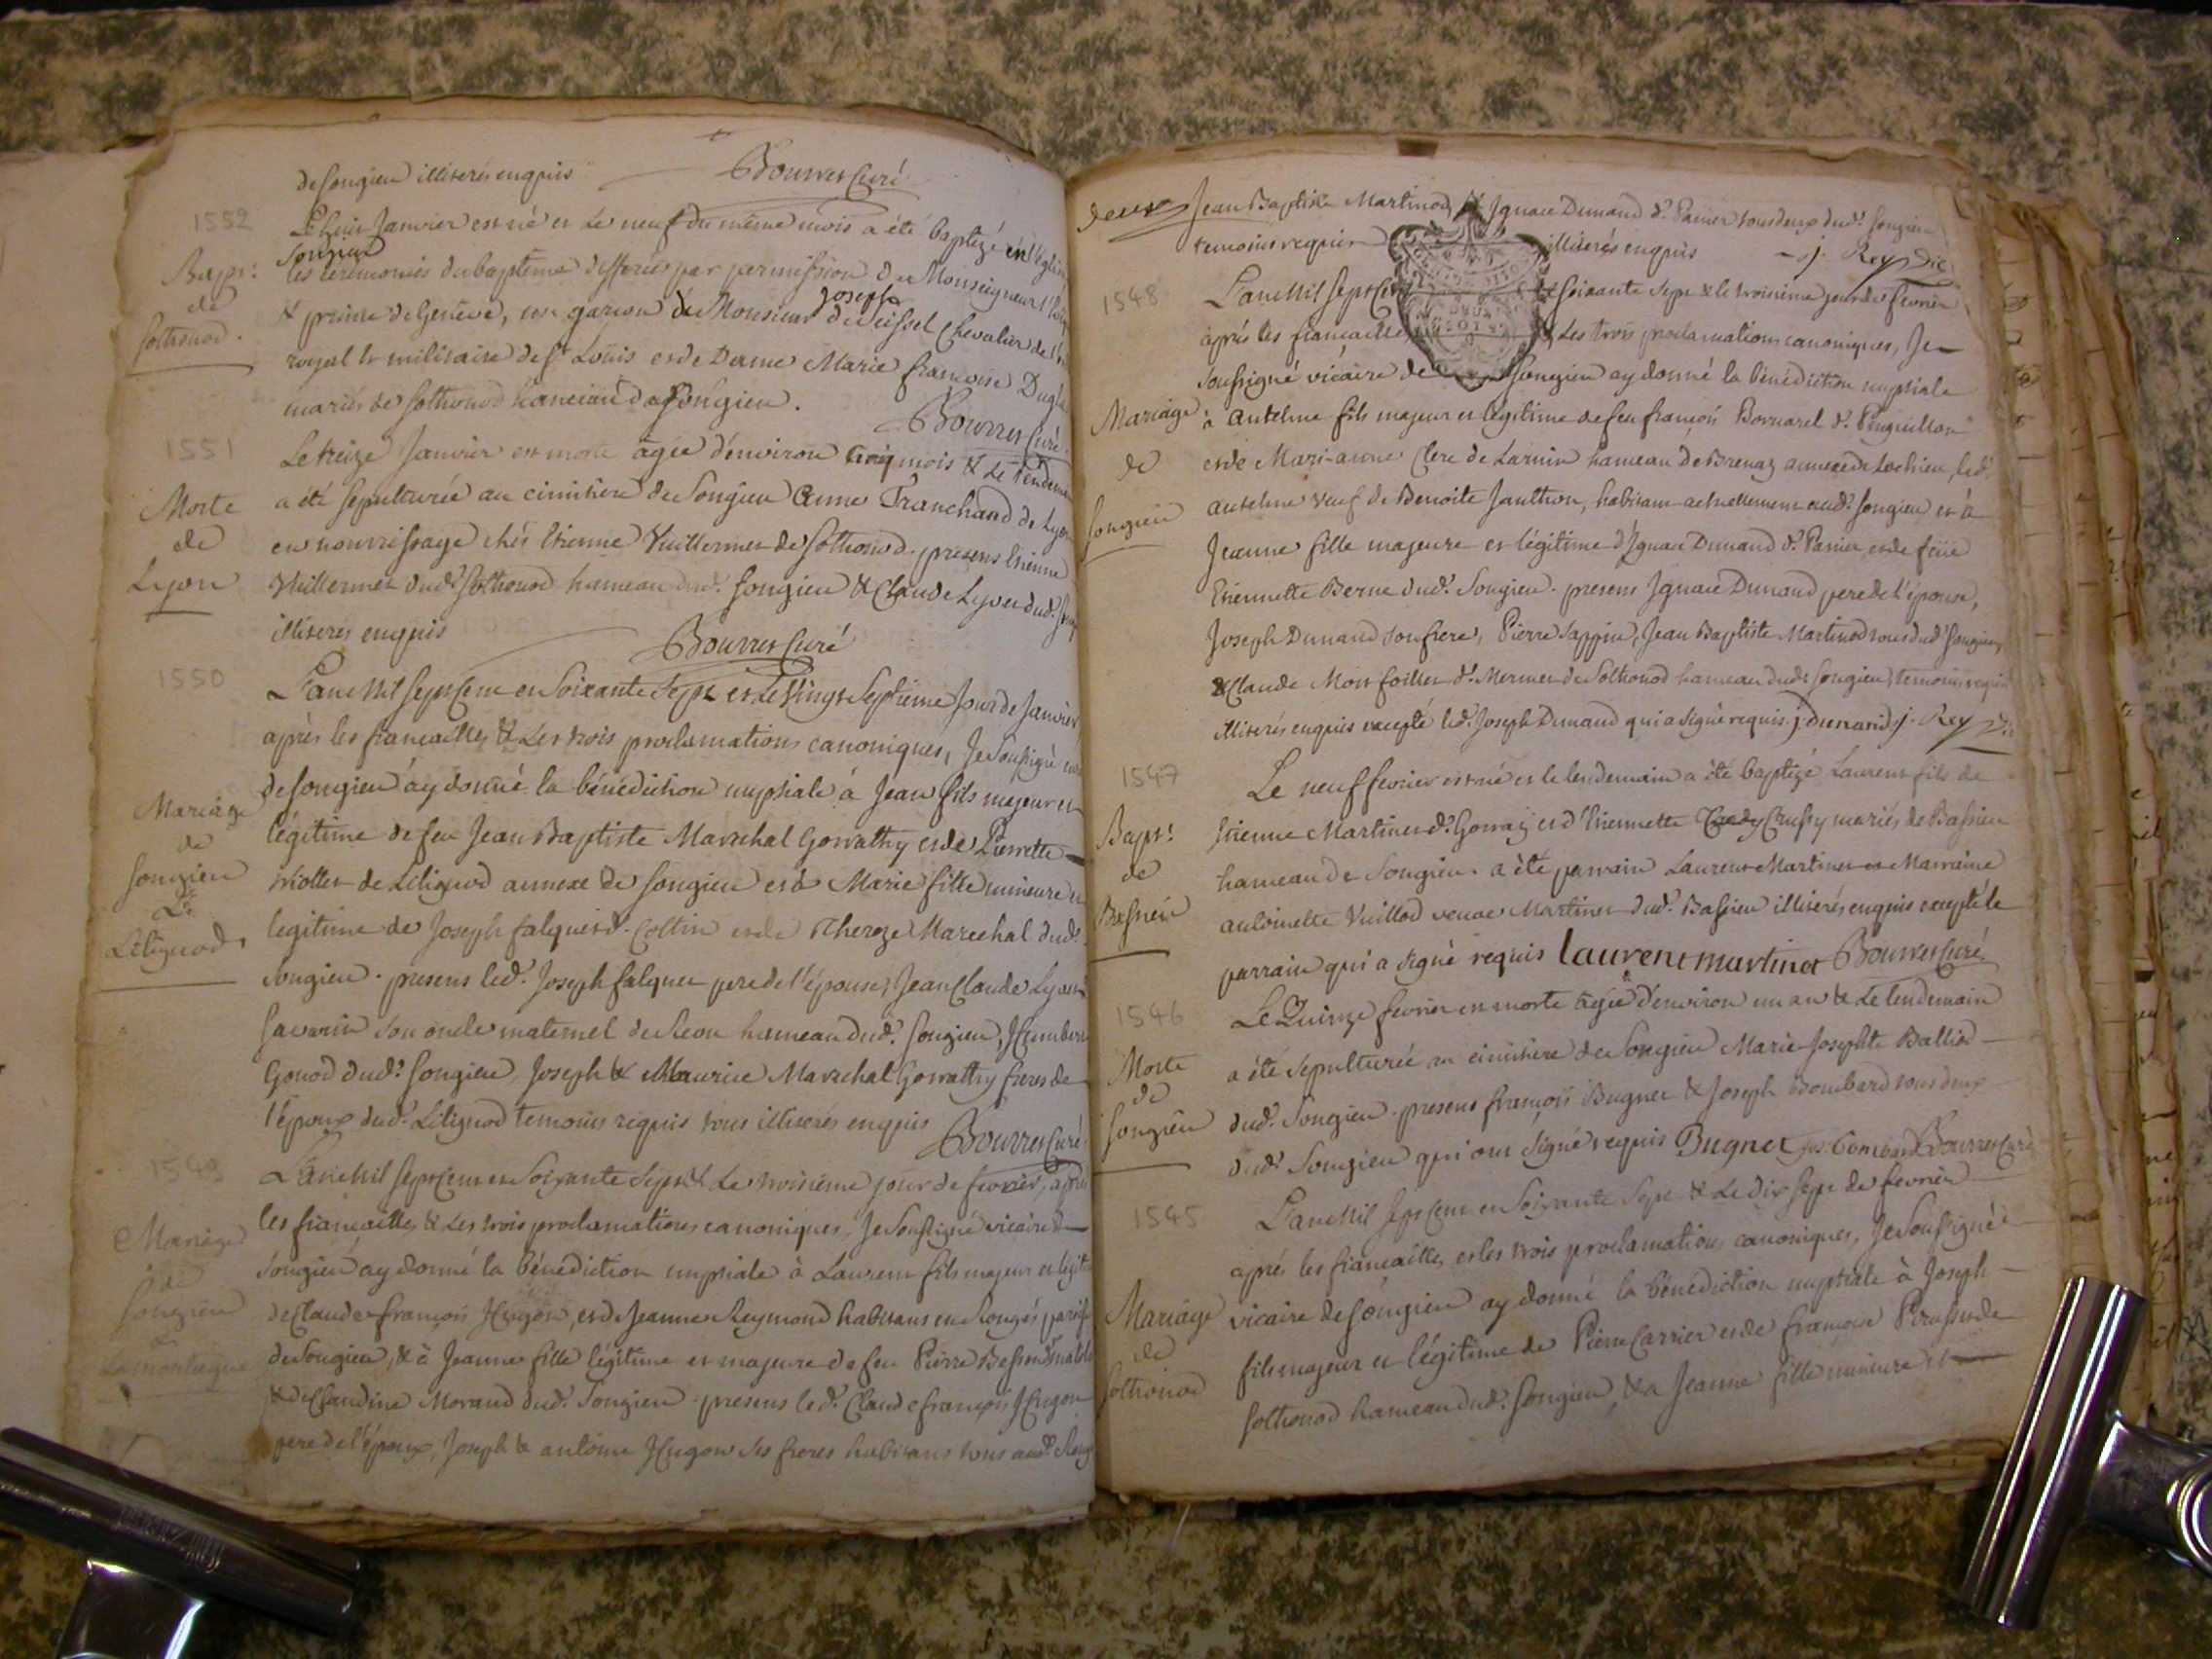 de Songieu illiterés enquis Bourret Curé
1552
Le huit Janvier est né et Le neuf du même mois a été baptizé en l'églis
Songieu
Bapt:
de
Sothonod.
les ceremonies du baptême differées par permission de Monseigneur l'
& prince de Genêve, un garcon de Monsieur Joseph de Seissel Chevalier de l'
royal & militaire de St Loüis et de Dame Marie francoise
mariés de Sothonod hameau de Songieu.
Bourret Curé
1551
Morte
de
Lyon
Le treize Janvier est morte agée d'environ cinq mois & Le lendemain
a été sepulturée au cimitiere de Songieu Anne Tranchand de Lyon
en nourrissage chés Etienne Vuillermet de Sothonod. presens Etienne
Vuillermet dudt Sothonod hameau dudt Songieu & Claude Lyvet dudt
illiterés enquis Bourret Curé
1550
Mariage
de
Songieu
&
Lilignod
L'an Mil Sept Cent et Soixante Sept et Le Vingt Septieme Jour de Janvier
après les fiancailles & Les trois proclamations canoniques, Je Soussigné
de Songieu ay donné la bénédiction nuptiale à Jean fils majeur et
légitime de feu Jean Baptiste Marechal Gorrathy et de Pierrette
de Lilignod annexe de Songieu et à Marie fille mineure et
legitime de Joseph falquet dt Cottin et de Thereze Marechal dudt
Songieu. presens ledt Joseph falquet pere de l'épouse, Jean Claude
Savarin son oncle maternel de hameau dudt Songieu, Humbert
Gonod dudt Songieu, Joseph & Maurice Marechal Gorrathy freres de
l'époux dudt Lilignod temoins requis tous illiterés enquis
Bourret Curé
1549
Mariage
de
Songieu
&
L'an Mil Sept Cent et Soixante Sept & Le troisieme jour de fevrier, après
les fiancailles & Les trois proclamations canoniques, Je Soussigné vicaire de
Songieu ay donné la bénédiction nuptiale à Laurent fils majeur et légit
de Claude francois Hugon, et de Jeanne Reymond habitans
de Songieu, & à Jeanne fille légitime et majeure de feu Pierre
& de Claudine Morand dudt Songieu. presens ledt Claude francois Hugon
pere de l'époux, Joseph & antoine Hugon ses freres habitans tous audt
Jean Baptiste Martinod, & Ignace Dunand dt Panier tous deux dudt Songieu
temoins requis illiterés enquis J. Rey Vic
1548
Mariage:
de
Songieu
L'an Mil Sept Cent & soixante Sept & le troisieme jour de fevrier
après les fiancailles & Les trois proclamations canoniques, Je
soussigné vicaire de Songieu ay donné la bénédiction nuptiale
à Antelme fils majeur et légitime de feu francois Bornarel dt
et de Marianne Clerc de Larnin hameau de Brenaz annexe de Lochieu, ledt
antelme veuf de Benoite Janthon, habitant actuellement audt Songieu et à
Jeanne fille majeure et légitime d'Ignace Dunand dt Panier et de feüe
Etiennette Berne dudt Songieu. presens Ignace Dunand pere de l'épouse,
Joseph Dunand son frere, Pierre Sappin, Jean Baptiste Martinod tous dudt Songieu,
& Claude Montfoillet dt Mermet de Sothonod hameau dudt Songieu, temoins requis
illiterés enquis excepté ledt Joseph Dunand qui a signé requis. j. dunand j. Rey Vic
1547
Bapt:
de
Bassieu
Le neuf fevrier est né et le lendemain a été baptizé Laurent fils de
Etienne Martinet dt Gorraz et d'Etiennette Crussy mariés de Bassieu
hameau de Songieu. a été parrain Laurent Martinet et Marraine
antoinette Vuillod veuve Martinet dudt Bassieu illiterés enquis excepté le
parrain qui a signé requis laurent martinet Bourret Curé
1546
Morte
de
Songieu
Le Quinze fevrier est morte agée d'environ un an & Le lendemain
a été sepulturée au cimitiere de Songieu Marie Josephte Balliod
dudt Songieu. presens francois Bugnet & Joseph Bombard tous deux
dudt Songieu qui ont signé requis Bugnet jos. bombard Bourret Curé
1545
Mariage
de
Sothonod
L'an Mil Sept Cent et Soixante Sept & Le dix sept de fevrier
après les fiancailles et les trois proclamations canoniques, Je Soussigné
vicaire de Songieu ay donné la bénédiction nuptiale à Joseph
fils majeur et légitime de Pierre Carrier et de francoise de
Sothonod hameau dudt Songieu, & à Jeanne fille mineure et